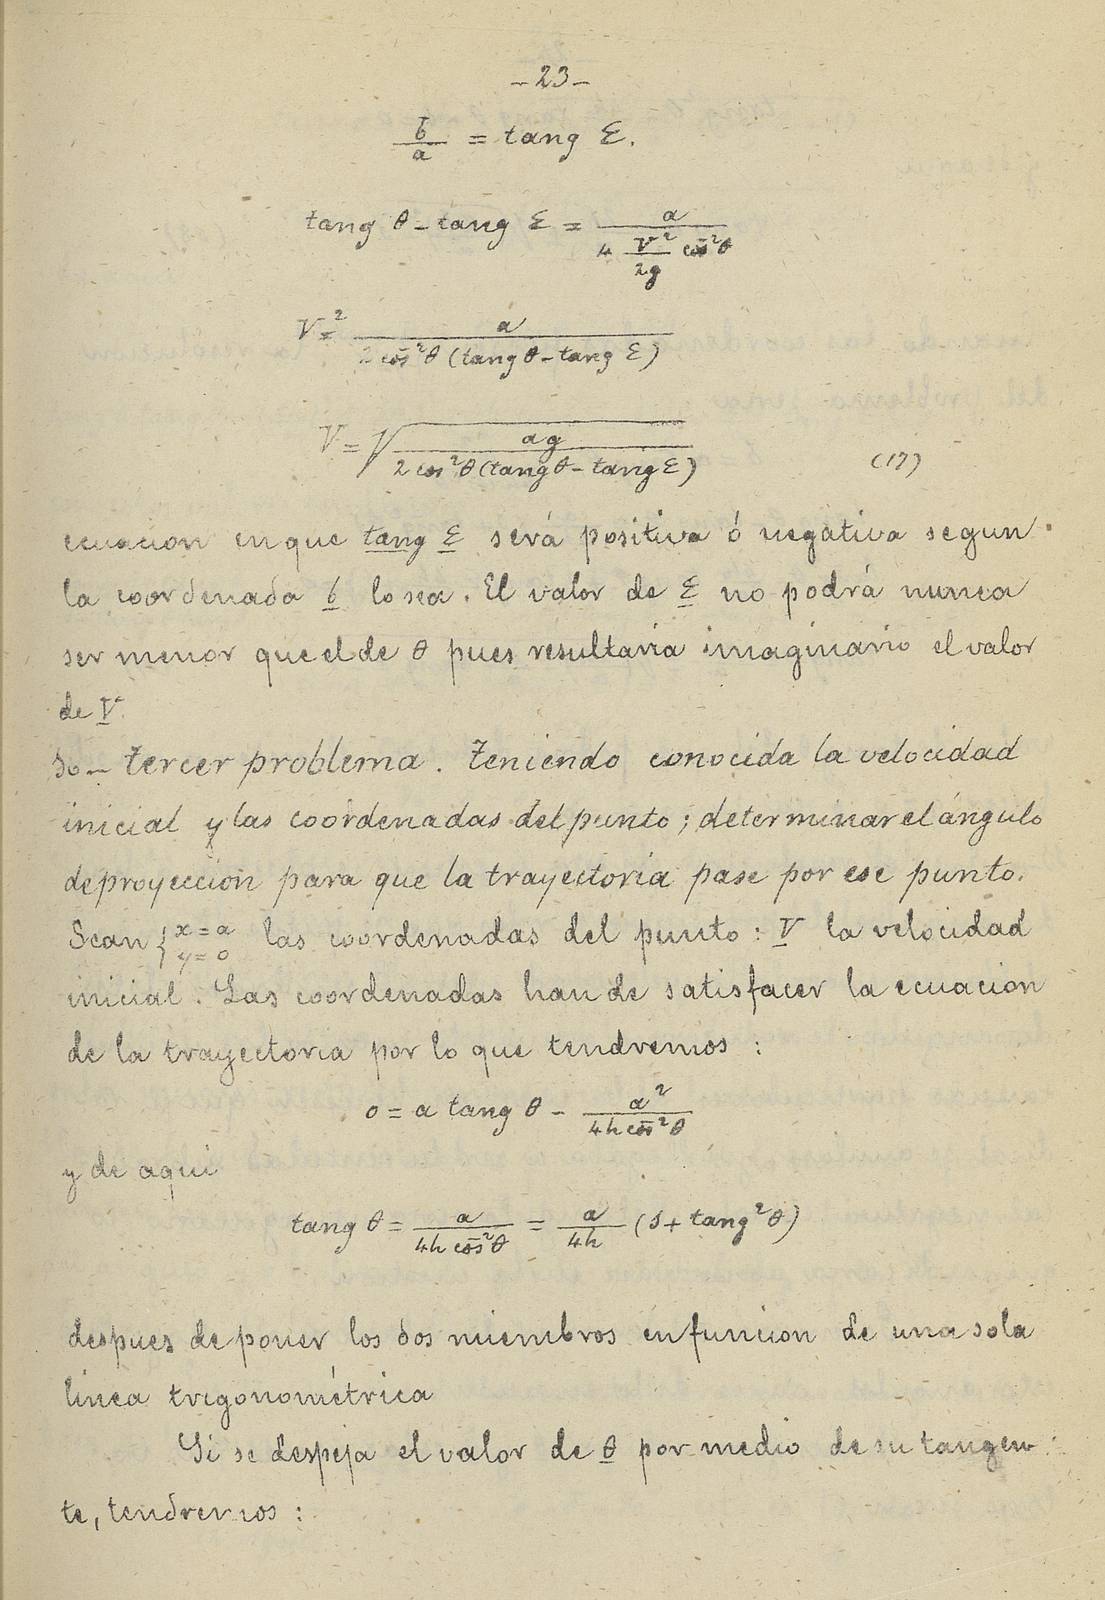 -23-
b/a = tang Ɛ.
tang θ - tang Ɛ = a / (4 (V²/2g) cos²θ)
V² = a / (2 cos²θ (tang θ - tang Ɛ))
V = √(ag / (2 cos²θ (tang θ - tang Ɛ))) (17)
ecuacion en que tang Ɛ será positiva ó negativa segun
la coordenada b lo sea. El valor de Ɛ no podrá nunca
ser menor que el de θ pues resultaria imaginario el valor
de V.
10 - tercer problema. Teniendo conocida la velocidad
inicial y las coordenadas del punto; determinar el ángulo
de proyeccion para que la trayectoria pase por ese punto.
Sean { x = a y = 0 las coordenadas del punto: V la velocidad
inicial. Las coordenadas han de satisfacer la ecuacion
de la trayectoria por lo que tendremos:
0 = a tang θ - a² / (4h cos²θ)
y de aqui
tang θ = a / (4h cos²θ) = a/4h (1 + tang²θ)
despues de poner los dos miembros en funcion de una sola
linea trigonométrica
Si se despeja el valor de θ por medio de su tangen-
te, tendremos: